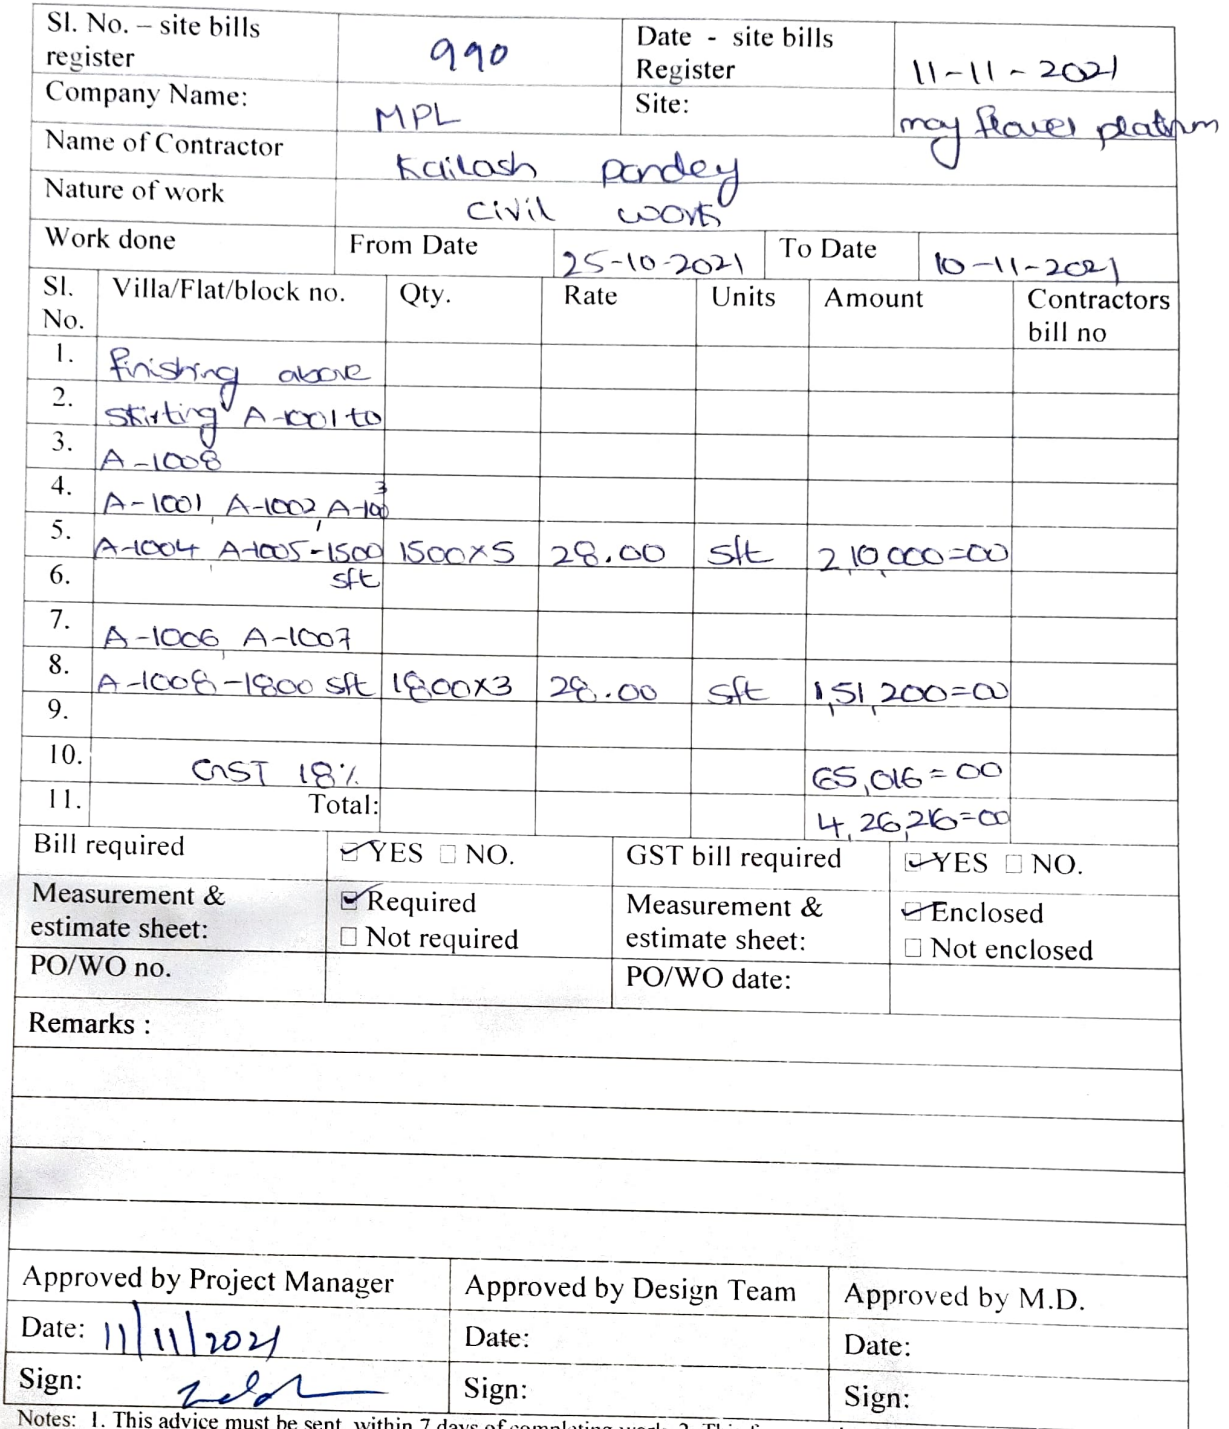 Sl. No. – site bills register 990 Date - site bills Register 11-11-2021
Company Name: MPL Site: may flower platinum
Name of Contractor Kailash pandey
Nature of work civil work
Work done From Date 25-10-2021 To Date 10-11-2021
Sl. No. Villa/Flat/block no. Qty. Rate Units Amount Contractors bill no
1. finishing above
2. skirting A-1001 to
3. A-1008
4. A-1001, A-1002, A-1003
5. A-1004, A-1005-1500 1500x5 28.00 sft 2,10,000=00
6. sft
7. A-1006, A-1007
8. A-1008-1800 sft 1800x3 28.00 sft 1,51,200=00
9.
10. GST 18% 65,016=00
11. Total: 4,26,216=00
Bill required YES NO. GST bill required YES NO.
Measurement & estimate sheet: Required Not required Measurement & estimate sheet: Enclosed Not enclosed
PO/WO no. PO/WO date:
Remarks :
Approved by Project Manager Approved by Design Team Approved by M.D.
Date: 11/11/2021 Date: Date:
Sign: Sign: Sign:
Notes: 1. This advice must be sent within 7 days of completing work. 2. This